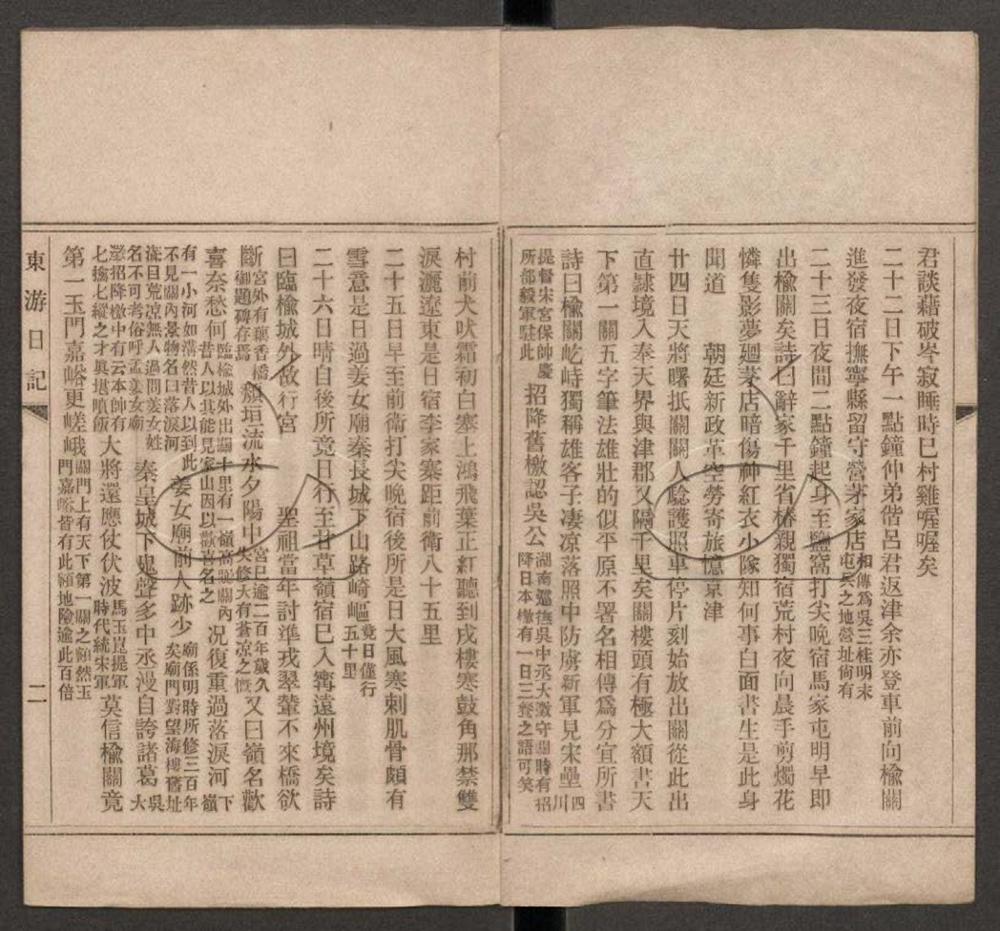 君談藉破岑寂睡時巳村雞喔喔矣
二十二日下午一點鐘仲弟偕呂君返津余亦登車前向榆關
進發夜宿撫寧縣留守營茅家店
相傳爲吳三桂明末
屯兵之地營址尙有
二十三日夜間二點鐘起身至鹽窩打尖晚宿馬家屯明早即
出榆關矣詩曰辭家千里省椿親獨宿荒村夜向晨手剪燭花
憐隻影夢廻茅店暗傷神紅衣小隊知何事白面書生是此身
聞道　朝廷新政革空勞寄旅憶京津
廿四日天將曙抵關關人驗護照車停片刻始放出關從此出
直隷境入奉天界與津郡又隔千里矣關樓頭有極大額書天
下第一關五字筆法雄壯的似平原不署名相傳爲分宜所書
詩曰榆關屹峙獨稱雄客子凄凉落照中防虜新軍見宋壘
四川
提督宋宮保帥慶
所部毅軍駐此
招降舊檄認吳公
湖南巡撫吳中丞大澂守關時有招
降日本檄有一日三餐之語可笑
村前犬吠霜初白寨上鴻飛葉正紅聽到戍樓寒鼓角那禁雙
淚灑遼東是日宿李家寨距前衛八十五里
二十五日早至前衛打尖晚宿後所是日大風寒刺肌骨頗有
雪意是日過姜女廟秦長城下山路崎嶇
竟日僅行
五十里
二十六日晴自後所竟日行至甘草嶺宿巳入寗遠州境矣詩
曰臨榆城外故行宮　聖祖當年討準戎翠輦不來橋欲
斷
宮外有藕香橋
御題碑存焉
頹垣流水夕陽中
宮巳逾二百年歲久
失修大有蒼凉之慨
又曰嶺名歡
喜奈愁何
臨榆城外出關十里有一嶺高與關內
昔人以其能見家山因以歡喜名之
况復重過落淚河
嶺下
有一小河如溝然昔人以到此
不見關內景物名曰落淚河
姜女廟前人跡少
廟係明時所修三百年
矣廟門對望海樓舊址
滄目荒凉無人過問姜女姓
名不可考俗呼孟姜女廟
秦皇城下鬼聲多中丞漫自誇諸葛
吳大
澂招降檄中有云本帥有
七擒七縱之才眞堪噴飯
大將還應仗伏波
馬玉崑提軍
時代統宋軍
莫信榆關竟
第一玉門嘉峪更嵯峨
關門上有天下第一關之額然玉
門嘉峪皆有此額地險逾此百倍
東游日記
二